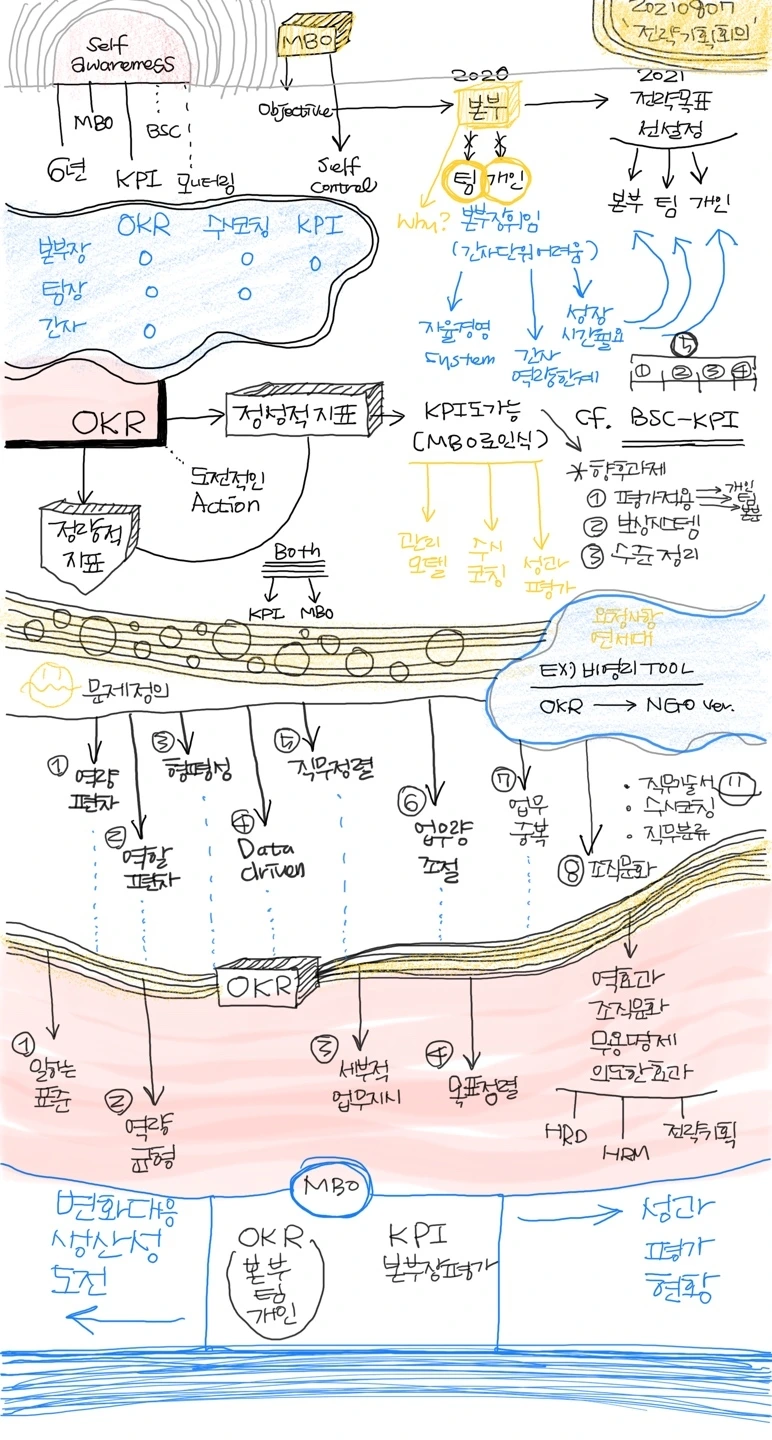 20210807
'전략기획회의'
Self
awareness
MBO
BSC
6년
KPI
모니터링
MBO
Objective
Self
control
2020
본부
팀 개인
Why?
본부장위임
(간사단위어려움)
자율경영
System
간사
역량한계
성장
시간필요
2021
전략목표
선설정
본부 팀 개인
OKR 수시코칭 KPI
본부장 O O O
팀장 O O
간사 O
5
① ② ③ ④
OKR
정성적지표
KPI도가능
(MBO로인식)
cf. BSC-KPI
도전적인
Action
정량적
지표
Both
KPI MBO
관리
모델
수시
코칭
성과
평가
*향후과제
① 평가적용
개인
팀
본부
② 보상시스템
③ 수준정리
요청사항
연세대
EX) 비영리 TOOL
OKR → NGO ver.
문제정의
① 역량
편차
② 역할
편차
③ 형평성
④ Data
driven
⑤ 직무정렬
⑥ 업무량
조절
⑦ 업무
중복
⑧ 조직문화
• 직무기술서
• 수시코칭
• 직무분류
OKR
① 일하는
표준
② 역량
균형
③ 세부적
업무지시
④ 목표정렬
역효과
조직문화
무용명제
의도한효과
HRD
HRM
전략기획
MBO
변화대응
생산성
도전
OKR
본부
팀
개인
KPI
본부장평가
성과
평가
현황